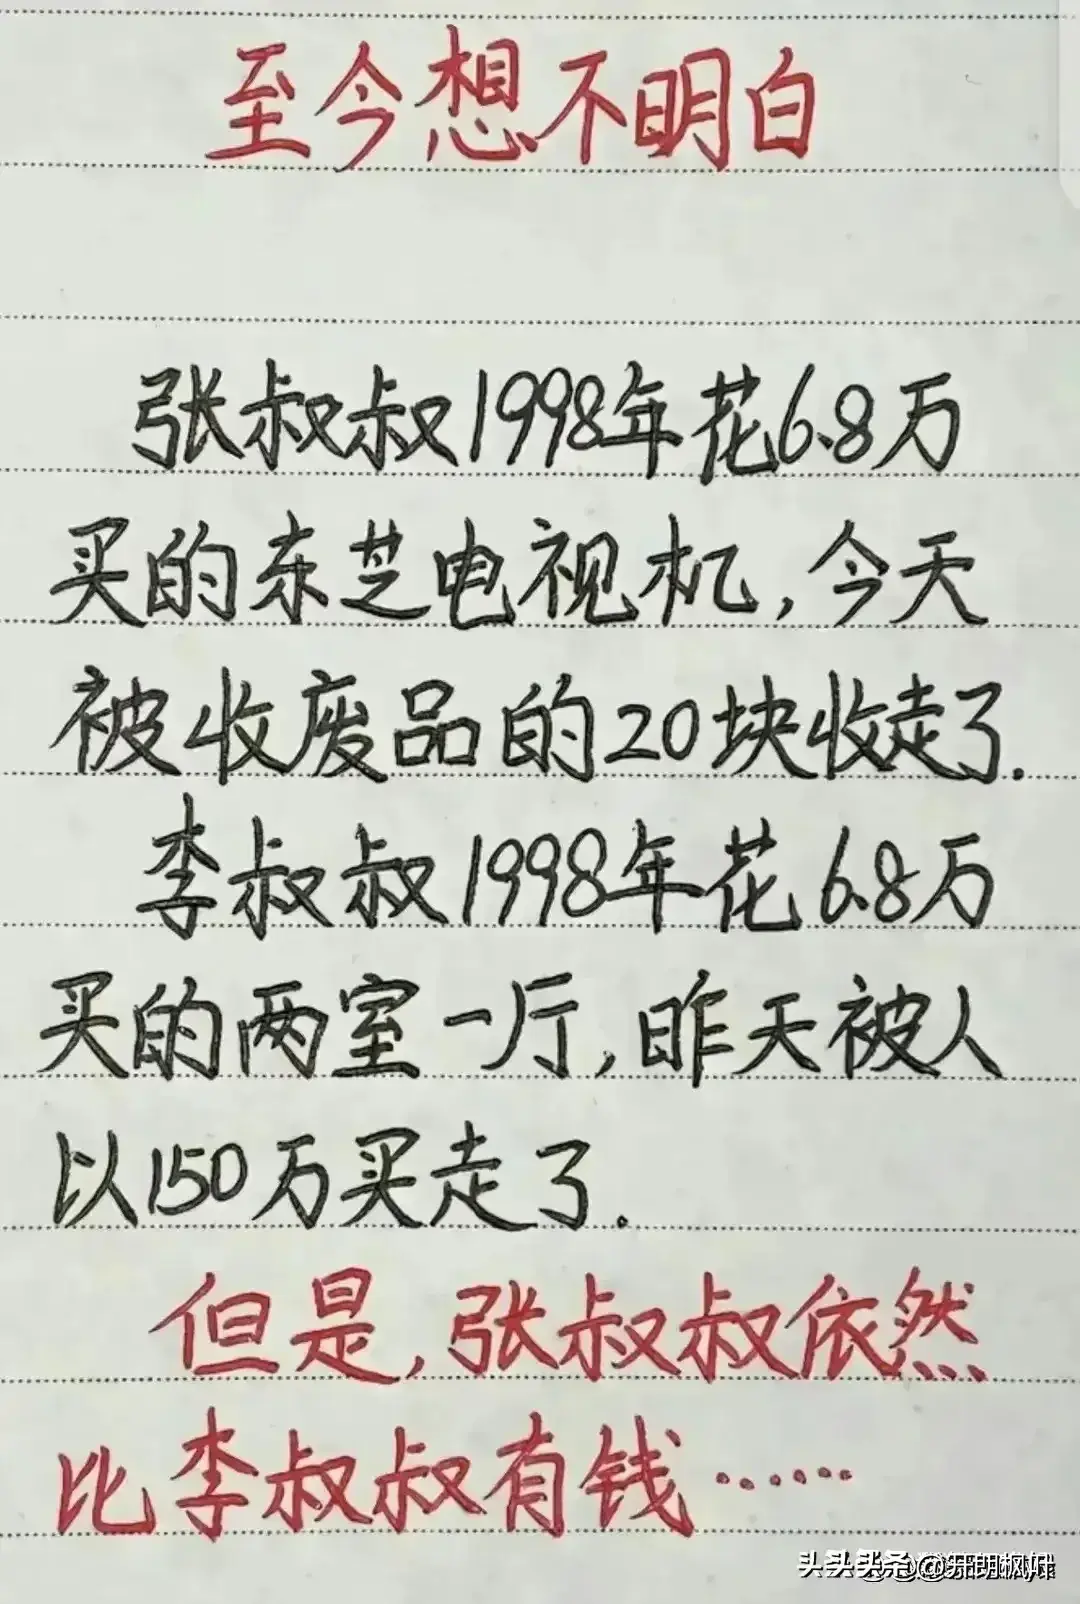 至今想不明白
张叔叔1998年花6.8万
买的东芝电视机,今天
被收废品的20块收走了.
李叔叔1998年花6.8万
买的两室一厅,昨天被人
以150万买走了.
但是,张叔叔依然
比李叔叔有钱……
头条 @开朗枫叶